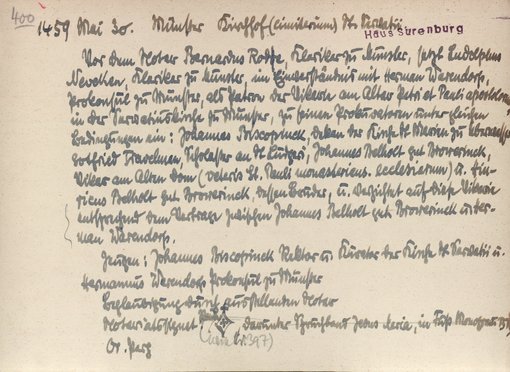 400
1459 Mai 30. Münster Kirchhof (cimiterium) St. Servatii
Haus Surenburg
Vor dem Notar Bernardus Rotte, Kleriker zu Münster, setzt Ludolphus
Kleriker zu Münster, im Einverständnis mit Herman Warendorp,
Prokonsul zu Münster, als Patron der Vikarie am Altar Petri et Pauli apostolorum
in der Servatiuskirche zu Münster, zu seinen Prokuratoren unter gleichen
Bedingungen ein: Johannes Biscopinck, Dekan der Kirche St. Mariae zu Überwasser
Gotfried Travelman, Scholaster an St. Ludgeri, Johannes Bekholt gen. Browerinck,
Vikar am Alten Dom (veteris St. Pauli monasteriens. ecclesiarum) u. Hin-
ricus Bekholt gen. Browerinck, dessen Bruder, u. verzichtet auf diese Vikarie
entsprechend dem Vertrage zwischen Johannes Bekholt gen. Browerinck u. Her-
man Warendorp.
Zeugen: Johannes Biscopinck Rektor u. Kurator der Kirche St. Servatii u.
Hermannus Warendorp Prokonsul zu Münster
Beglaubigung durch ausstellenden Notar
Notariatssignet darunter Spruchband Jesus Maria, im Fuß Monogramm
Or. Perg.
397)